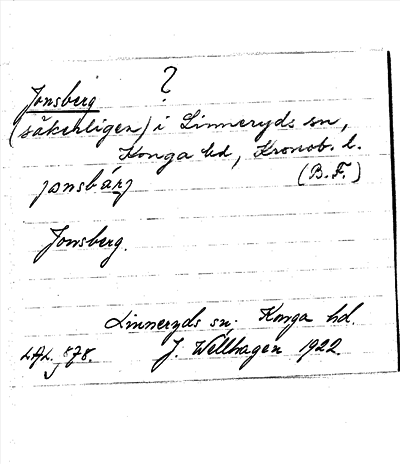 ?
Jonsberg
(säkerligen) i Linneryds sn,
Konga hd, Kronob. l.
jonsbárj (B.F.)
Jonsberg.
Linneryds sn. Konga hd.
J. Wellhagen 1922.